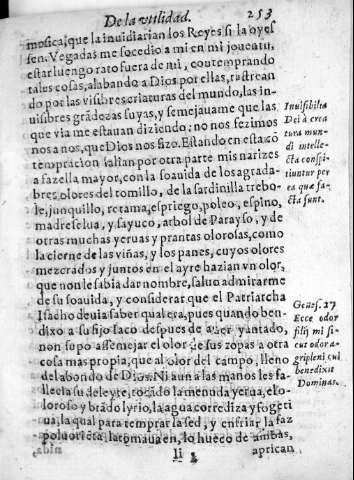 De la vtilidad. 253
mosica, que la inuidiarian los Reyes si la oyes
sen. Vegadas me socedio a mi en mi jouentu,
estar luengo rato fuera de mi, contemprando
tales cosas, alabando a Dios por ellas, rastrean
do por las visibres criaturas del mundo, las in-
uisibres grãdezas suyas, y semejauame que las
que via me estauan diziendo: no nos fezimos
nos a nos, que Dios nos fizo. Estando en esta cõ
tempracion salian por otra parte mis narizes
a fazella mayor, con la soauida de los agrada-
bres olores del tomillo, de la sardinilla trebo-
le, junquillo, retama, espriego, poleo, espino,
madreselua, y sayuco, arbol de Parayso, y de
otras muchas yeruas y prantas olorosas, como
la cierne de las viñas, y los panes, cuyos olores
mezcrados y juntos en el ayre hazian vn olor,
que non le sabia dar nombre, saluo admirarme
de su soauida, y considerar que el Patriarcha
Isac ho deuia saber qual era, pues quando ben-
dixo a su fijo Iaco despues de auer yantado,
non supo assemejar el olor de sus ropas a otra
cosa mas propia, que al olor del campo, lleno
del abondo de Dios. Ni aun a las manos les fa-
llecia su deleyte, tocãdo la menuda yerua, el o-
loroso y brãdo lyrio, la agua corrediza y fogeti
ua, la qual para temprar la sed, y enfriar la faz
poluorieta, la tomaua en lo hueco de ambas,
Ii aprican
Inuisibilia
Dei à crea
tura mun-
di intelle-
cta conspi-
tiuntur per
ea quæ fa-
cta sunt.
Genes. 27
Ecce odor
filij mi si-
cut odor a-
gri pleni cui
benedixit
Dominus.